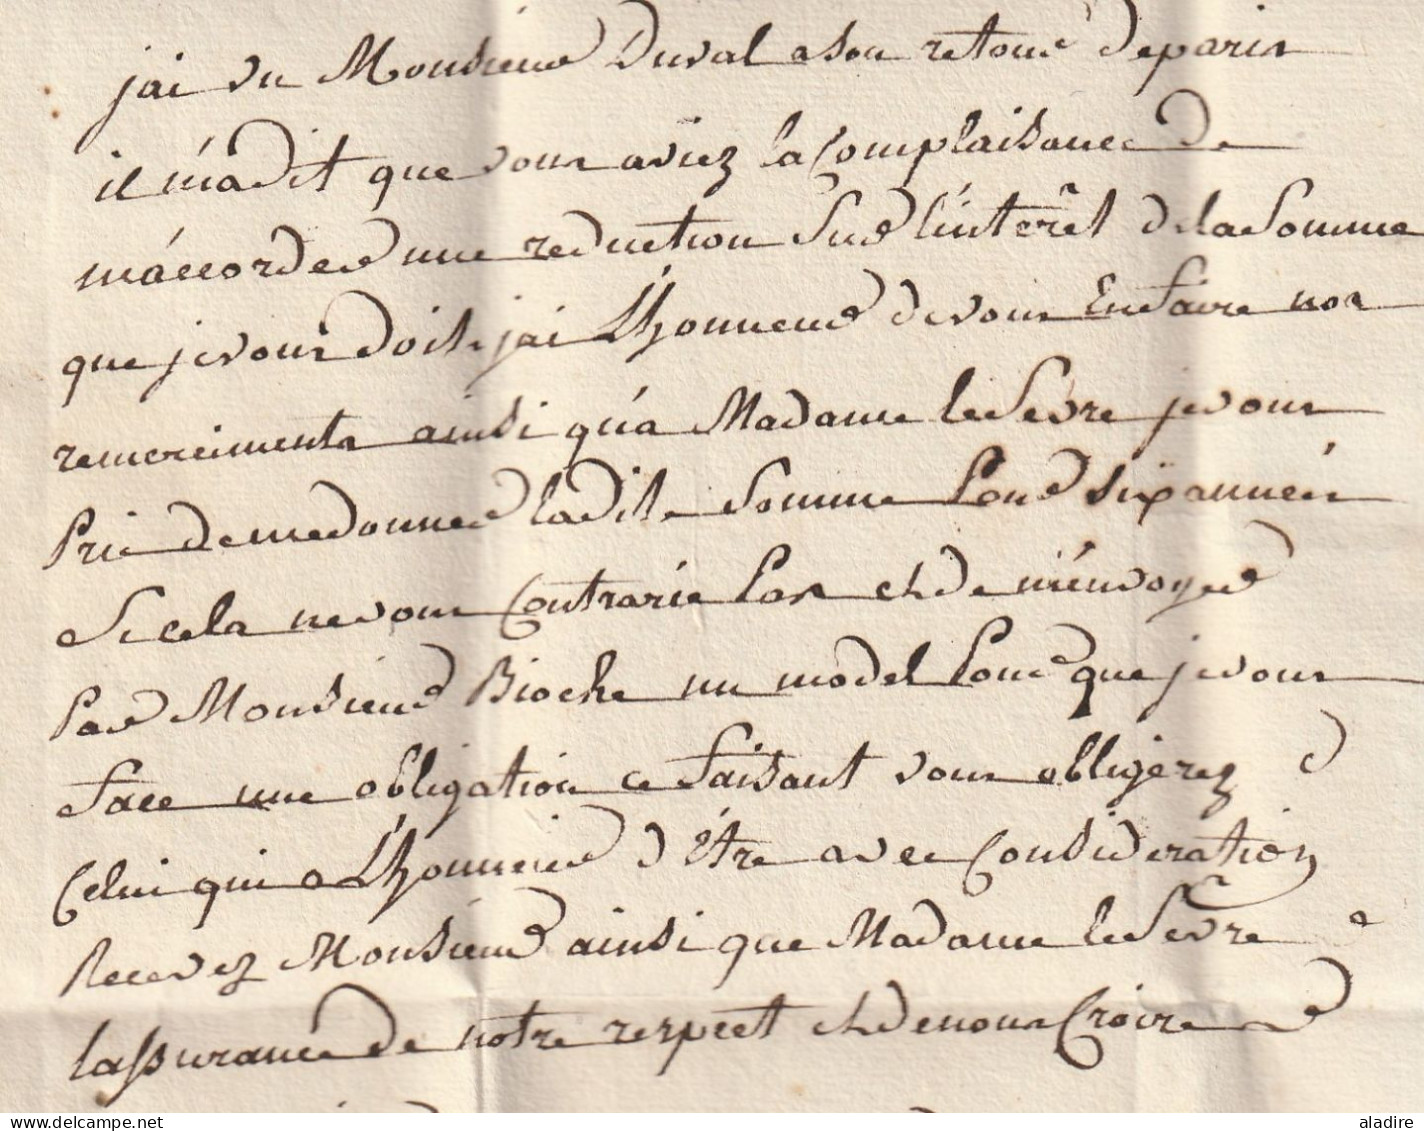 jai vu Monsieur Duval a son retour de paris
il m'a dit que vous aviez la Complaisance de
m'accorder une reduction sur l'intérêt de la Somme
que je vous doit jai L'honneur de vous En faire nos
remerciments ainsi qu'a Madame le Sevre je vous
Prie de me donner ladite Somme Pour six années
Si cela ne vous Contrarie Pas et de m'envoyer
Par Monsieur Bioche un model Pour que je vous
face une obligation ce faisant vous obligerez
Celui qui a L'honneur d'être avec Consideration
Recevez Monsieur ainsi que Madame le Sevre
lassurance de notre respect et de nous Croire
aladire.com